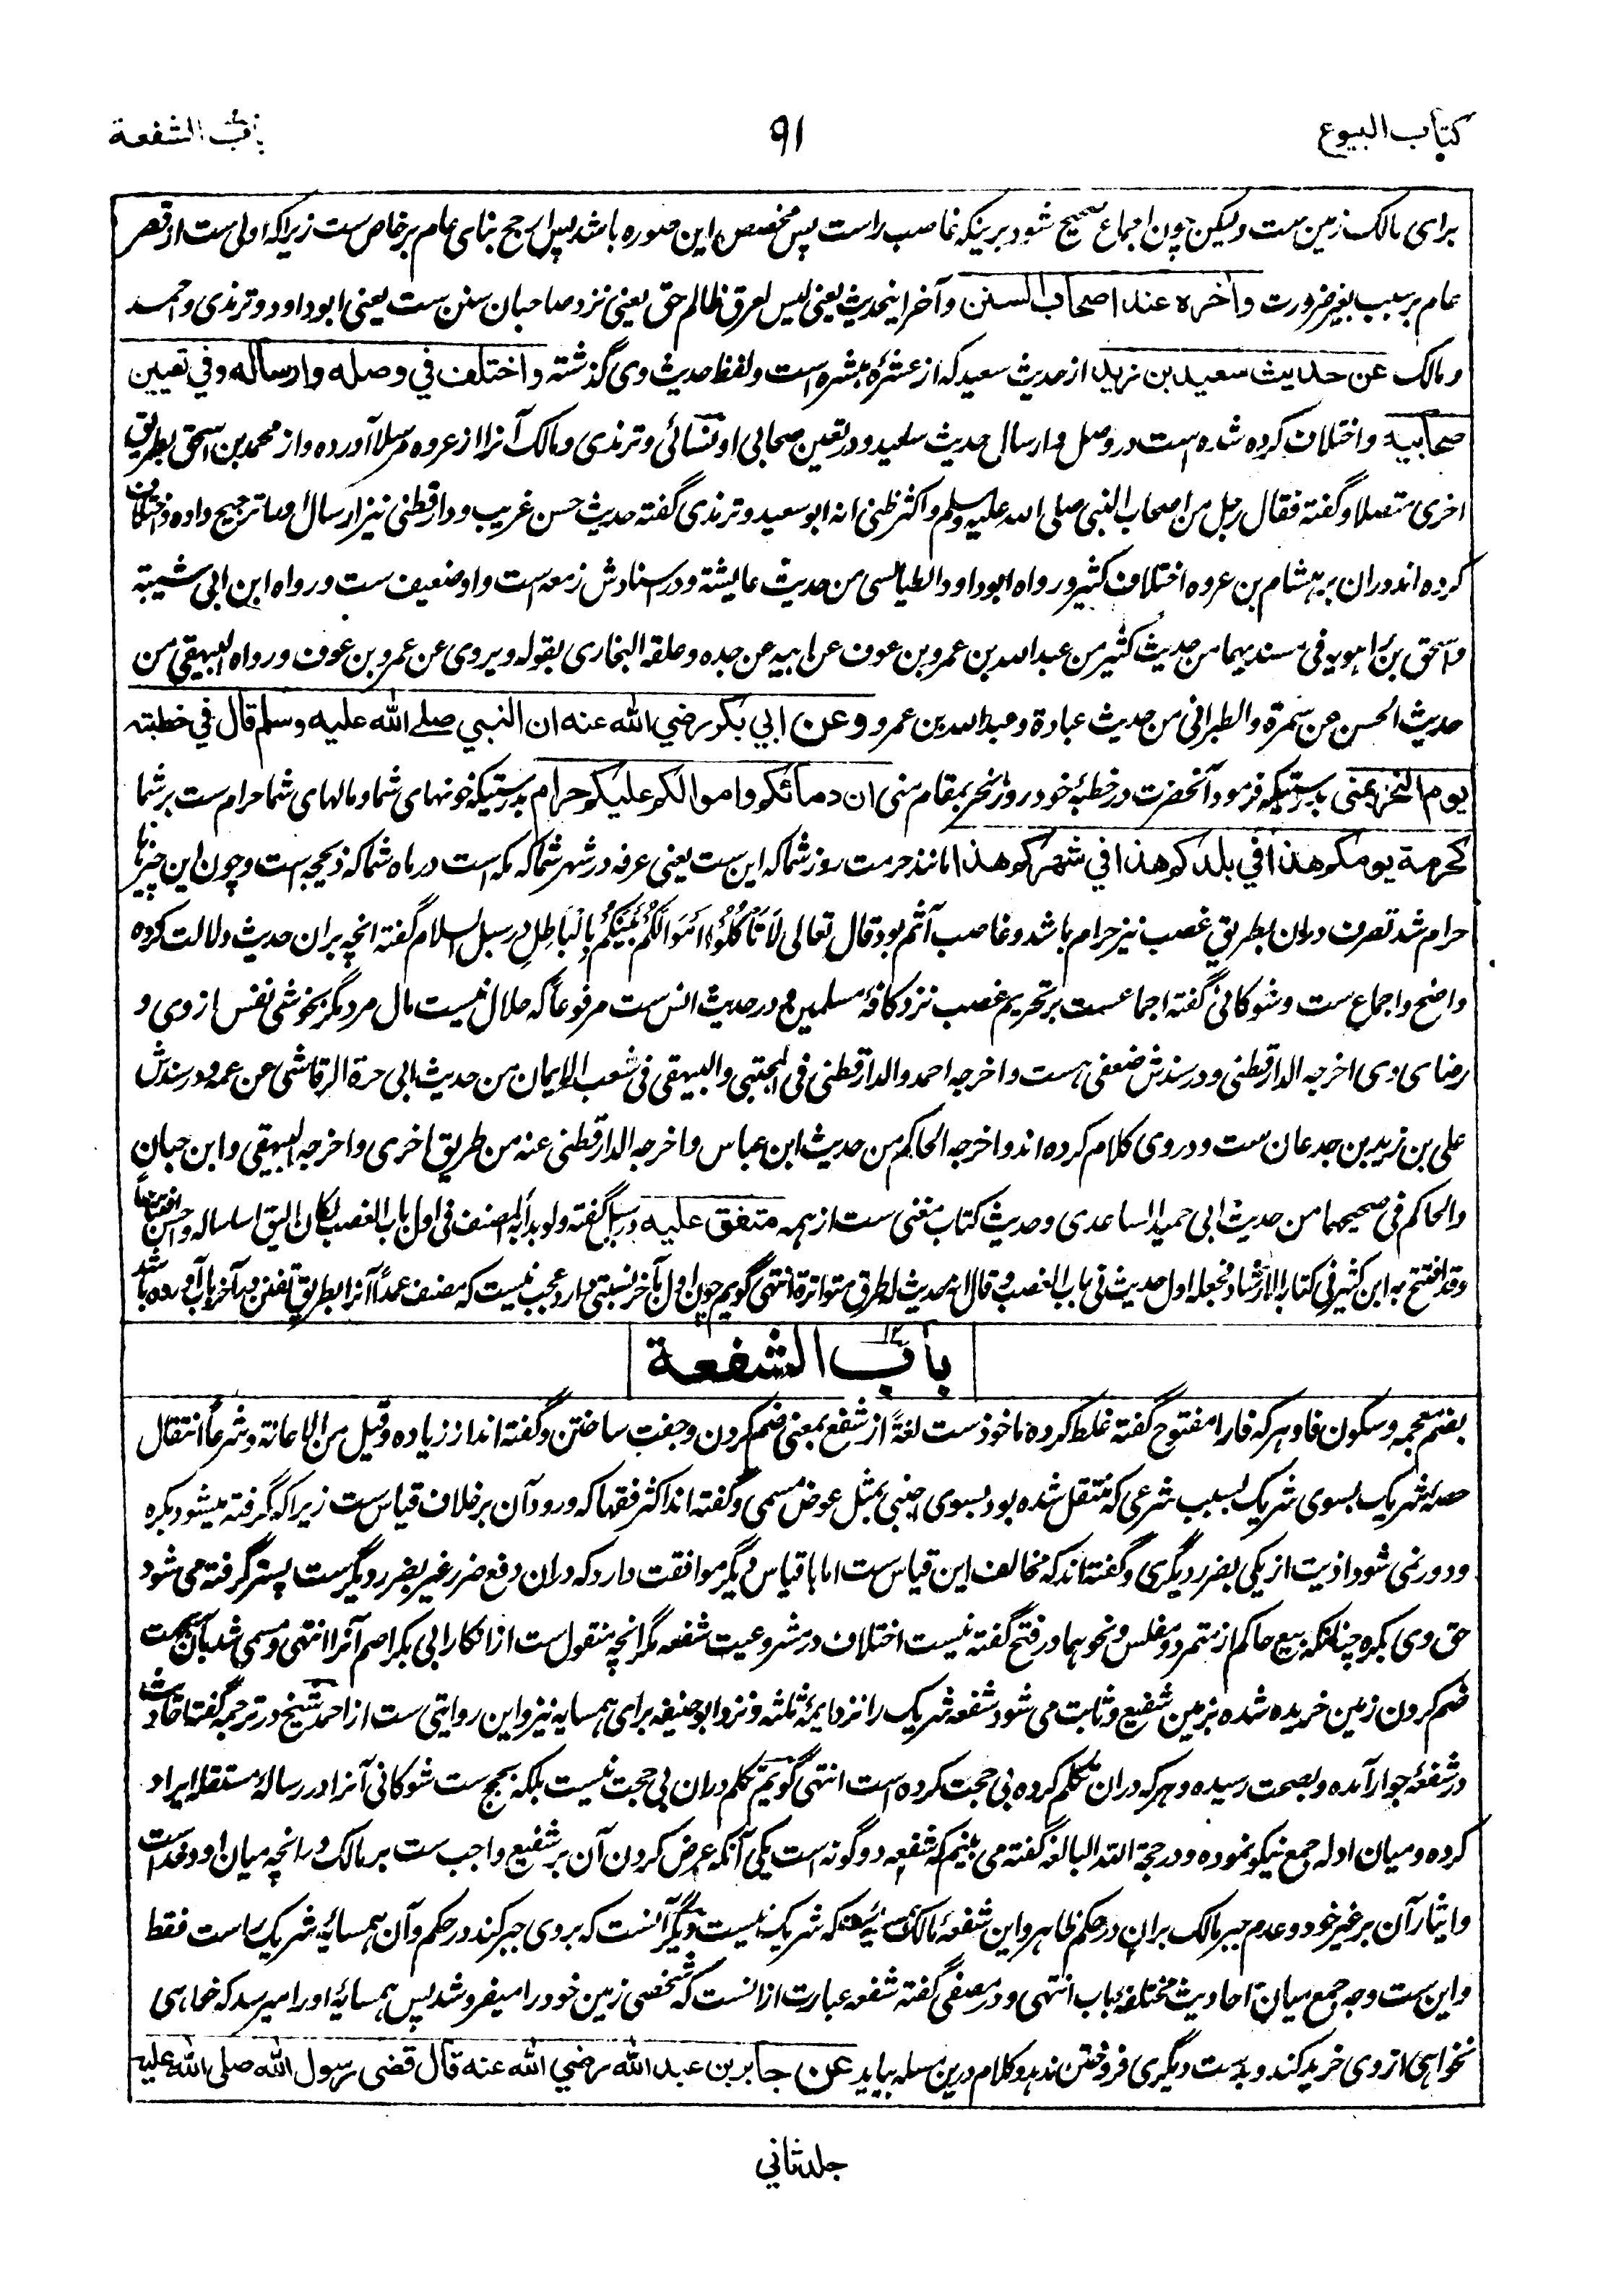 کتاب البیوع
۹۱
باب الشفعة
برای مالک زمین ست ولیکن چون اجماع صحیح شود برینکه غاصب راست پس مخصص این صوره باشد پس ارجح بنای عام بر خاص ست زیرا که اولی ست از قصر
عام بر سبب بغیر ضرورت وآخره عند اصحاب السنن وآخر اینحدیث یعنی لیس لعرق ظالم حق یعنی نزد صاحبان سنن ست یعنی ابوداود وترمذی واحمد
ومالک عن حدیث سعید بن زید از حدیث سعید که از عشرهٔ مبشره است ولفظ حدیث وی گذشته واختلف في وصله وارساله وفي تعیین
صحابیه واختلاف کرده شده است در وصل وارسال حدیث سعید ودر تعین صحابی او ونسائی وترمذی ومالک آنرا از عروه مرسلا آورده واز محمد بن اسحق بطریق
اخری متصلا وگفته فقال رجل من اصحاب النبی صلی الله علیه وسلم واکثر ظنی انه ابو سعید وترمذی گفته حدیث حسن غریب ودارقطنی نیز ارسال او را ترجیح داده واختلاف
کرده اند دران بر هشام بن عروه اختلاف کثیر ورواه ابوداود الطیالسی من حدیث عایشة ودر اسنادش زمعه است واو ضعیف ست ورواه ابن ابی شیبة
واسحق بن راهویه فی مسندیهما من حدیث کثیر من عبدالله بن عمرو بن عوف عن ابیه عن جده وعلقه البخاری بقوله ویروی عن عمرو بن عوف ورواه البیهقی من
حدیث الحسن عن سمرة والطبرانی من حدیث عبادة وعبدالله بن عمرو وعن ابي بکر رضي الله عنه ان النبي صلے الله علیه وسلم قال في خطبته
یوم النحر بمنی بدرستیکه فرمود آنحضرت در خطبهٔ خود روز نحر بمقام منی ان دمائکم واموالکم علیکم حرام بدرستیکه خونهای شما ومالهای شما حرام ست بر شما
کحرمة یومکم هذا في بلدکم هذا في شهرکم هذا مانند حرمت روز شما که این ست یعنی عرفه در شهر شما که مکه است در ماه شما که ذیحجه است وچون این چیزها
حرام شد تصرف دران بطریق غصب نیز حرام باشد وغاصب آثم بود قال تعالی لَا تَأْكُلُوْا اَمْوَالَكُمْ بَيْنَكُمْ بِالْبَاطِلِ در سبل السلام گفته انچه بران حدیث دلالت کرده
واضح واجماع ست وشوکانی گفته اجماعست بر تحریم غصب نزد کافهٔ مسلمین ودر حدیث انس ست مرفوعا که حلال نیست مال مرد مگر بخوشی نفس از وی و
رضای وی اخرجه الدارقطنی ودر سندش ضعفی هست واخرجه احمد والدارقطنی فی المجتبی والبیهقی فی شعب الایمان من حدیث ابی حرة الرقاشی عن عمه ودر سندش
علی بن زید بن جدعان ست ودر وی کلام کرده اند واخرجه الحاکم من حدیث ابن عباس واخرجه الدارقطنی عنه من طریق اخری واخرجه البیهقی وابن حبان
والحاکم فی صحیحهما من حدیث ابی حمید الساعدی وحدیث کتاب مغنی ست از همه متفق علیه در سبل گفته ولو بدأ به المصنف فی اول باب الغصب لکان الیق اساسا له واحسن افتتاحا
وقد افتتح به ابن کثیر فی کتابه الارشاد فجعله اول حدیث فی باب الغصب وقال انه حدیث له طرق متواترة انتهی گویم چون اول بآخر نسبتی دارد عجب نیست که مصنف عمداً آنرا بطریق تفنن در آخر باب آورده باشد
باب الشفعة
بضم معجمه وسکون فا وهر که فا را مفتوح گفته غلط کرده ماخوذ ست لغةً از شفع بمعنی ضم کردن وجفت ساختن وگفته اند از زیاده وقیل من الاعانة وشرعاً انتقال
حصهٔ شریک بسوی شریک بسبب شرعی که منتقل شده بود بسوی اجنبی بمثل عوض مسمی وگفته اند اکثر فقها که ورود آن بر خلاف قیاس ست زیرا که گرفته میشود بکره
ودور نمی شود اذیت از یکی بضرر دیگری وگفته اند که مخالف این قیاس ست اما با قیاس دیگر موافقت دارد که دران دفع ضرر غیر بضرر دیگرست پستر گرفته می شود
حق وی بکره چنانکه بیع حاکم از متمرد ومفلس ونحوهما در فتح گفته نیست اختلاف در مشروعیت شفعه مگر انچه منقول ست از انکار ابی بکر اصم آنرا انتهی ومسمی شد بآن بجهت
ضم کردن زمین خریده شده بزمین شفیع وثابت می شود شفعه شریک را نزد ایمهٔ ثلثه ونزد ابو حنیفه برای همسایه نیز واین روایتی ست از احمد شیخ در ترجمه گفته احادیث
در شفعهٔ جوار آمده وبصحت رسیده وهر که دران تکلم کرده بی حجت کرده است انتهی گویم تکلم دران بی حجت نیست بلکه بحجج ست شوکانی آنرا در رسالهٔ مستقله ایراد
کرده ومیان ادله جمع نیکو نموده ودر حجة الله البالغه گفته می بینم که شفعه دو گونه است یکی آنکه عرض کردن آن بر شفیع واجب ست بر مالک در انچه میان او وخداست
وایثار آن بر غیر خود وعدم جبر مالک بران در حکم ظاهر واین شفعهٔ مالک همسایه ست که شریک نیست ودیگر آنست که بر وی جبر کند در حکم وآن همسایهٔ شریک راست فقط
واین ست وجه جمع میان احادیث مختلفهٔ باب انتهی ودر مصفی گفته شفعه عبارت ازانست که شخصی زمین خود را میفروشد پس همسایهٔ او را میرسد که خواهی
نخواهی از وی خرید کند وبدست دیگری فروختن ندهد وکلام درین مسله بیاید عن جابر بن عبد الله رضي الله عنه قال قضی رسول الله صلی الله علیه
جلد ثاني